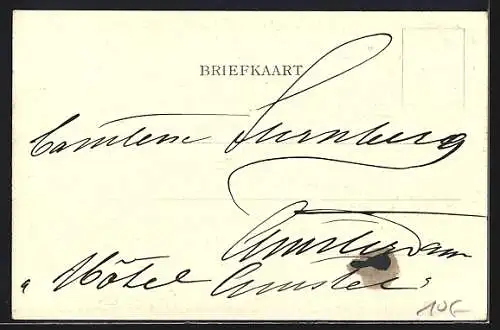 BRIEFKAART
Comtesse Sternberg
Amsterdam
"Hôtel Amstel"
10.-